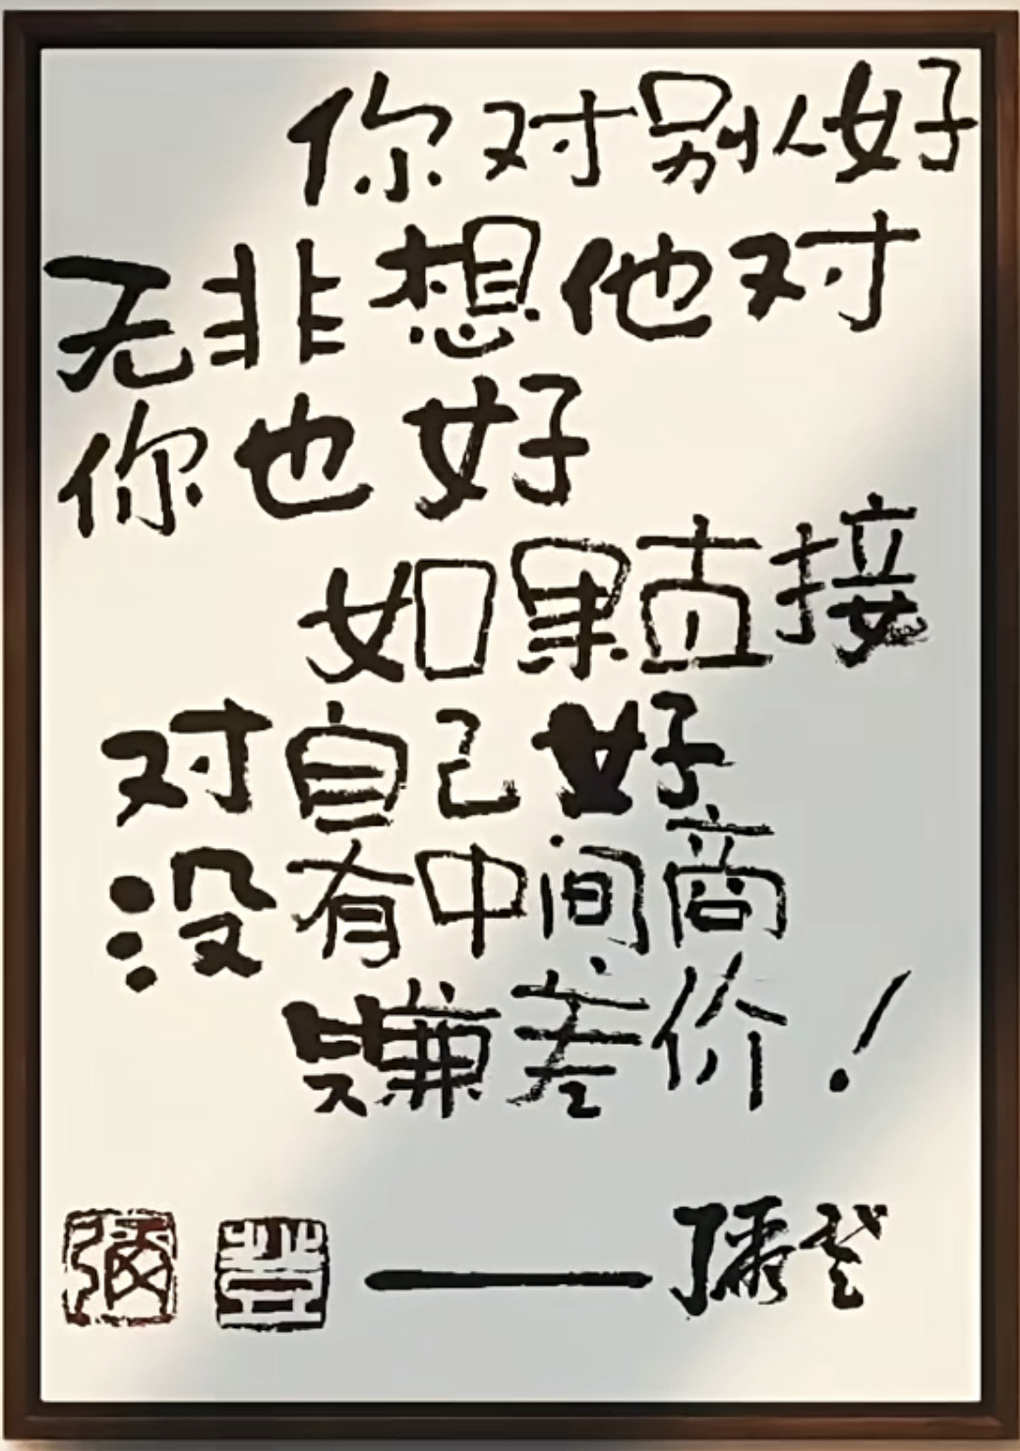 你对别人好
无非想他对
你也好
如果直接
对自己好
没有中间商
赚差价！